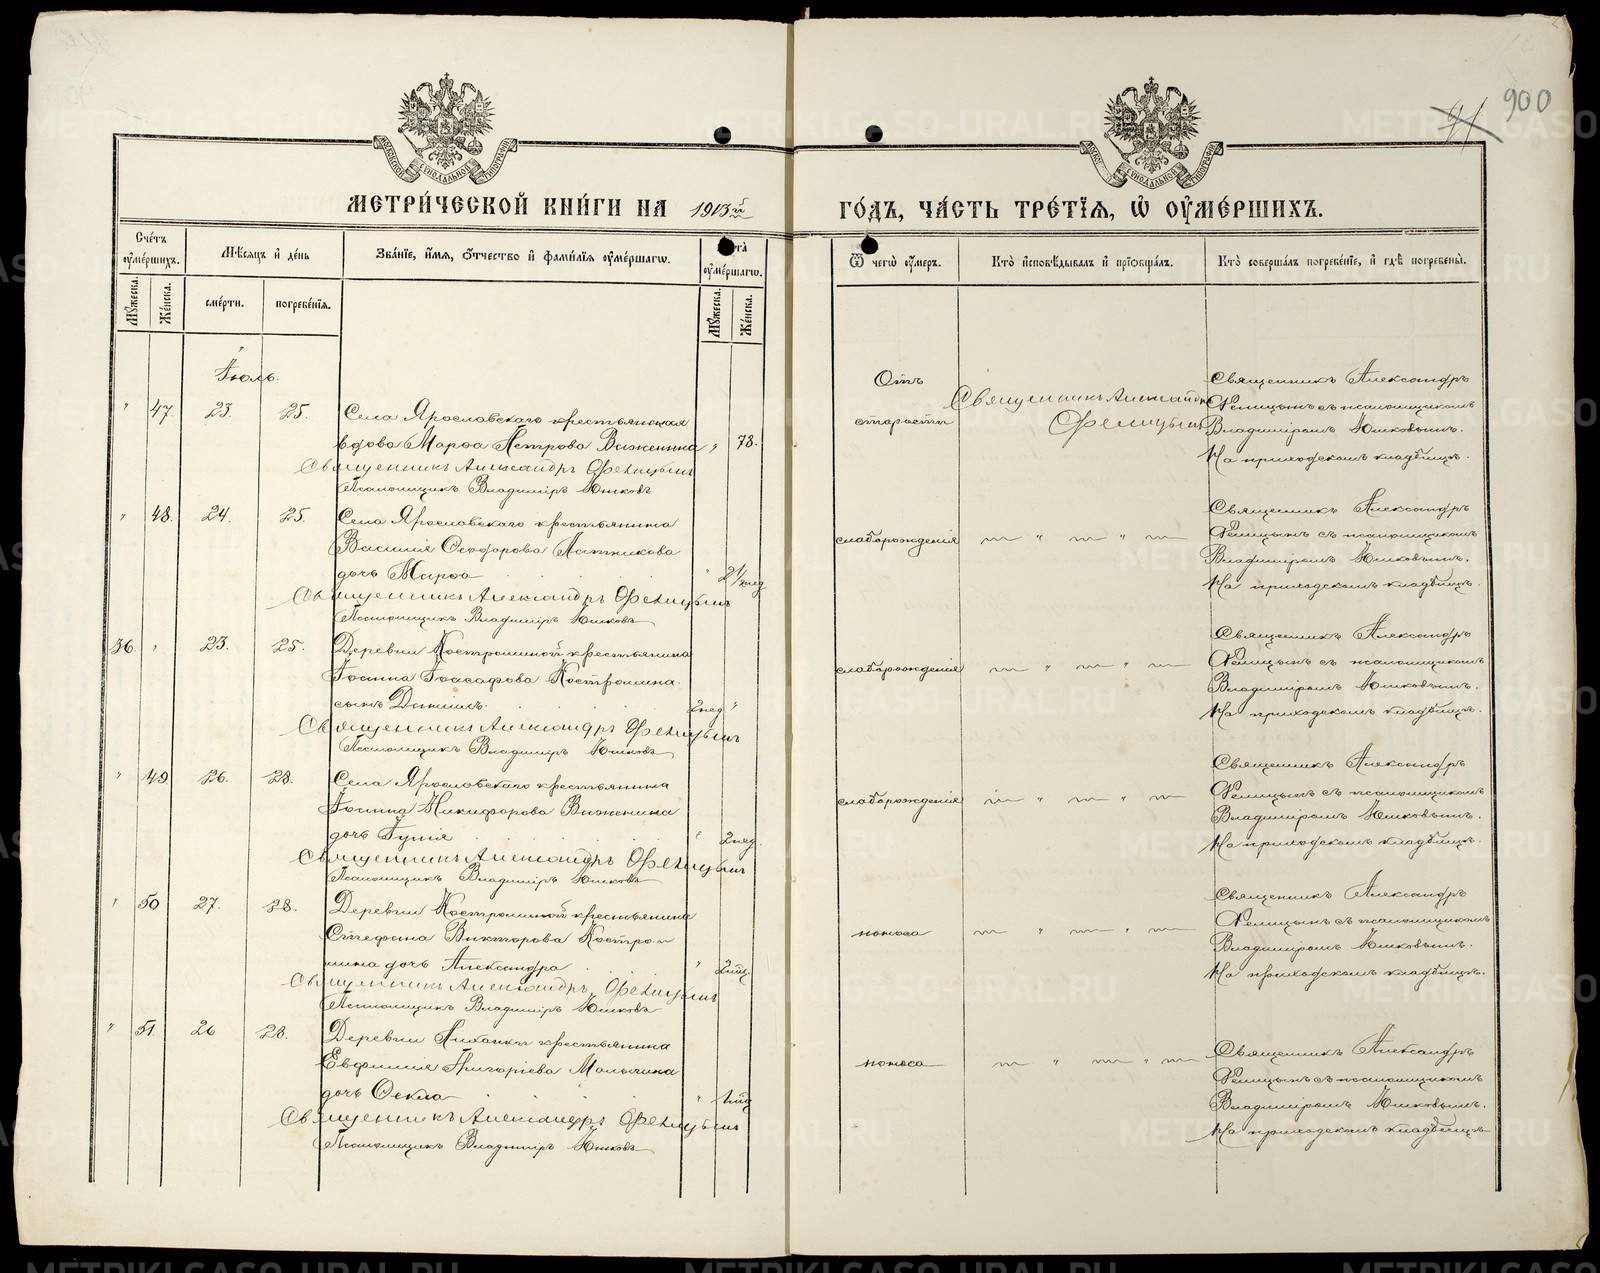 900
91
МЕТРИ́ЧЕСКОЙ КНИ́ГИ НА 1913й
ГО́ДЪ, ЧА́СТЬ ТРЕ́ТЇѦ, Ѡ ОУМЕ́РШИХЪ.
Сче́тъ оумершихъ.
Мѣсѧцъ и де́нь
Зва́нїе, и́мѧ, ѻ́тчество и фами́лїѧ оумершагѡ.
оумершагѡ.
Ѿ чегѡ̀ оумеръ.
Кто̀ исповѣ́дывалъ и прїобща́лъ.
Кто̀ соверша́лъ погребе́нїе, и гдѣ̀ погребены̀.
Мꙋжеска.
Же́нска.
сме́рти.
погребе́нїѧ.
Мꙋжеска.
Же́нска.
Іюль.
" 47 23. 25. Села Ярославскаго крестьянская
вдова Марѳа Петрова Виженина " 78.
Священникъ Александръ Фелицынъ
Псаломщикъ Владиміръ Юшковъ
Отъ
старости
Священникъ Александръ
Фелицынъ
Священникъ Александръ
Фелицынъ съ псаломщикомъ
Владиміромъ Юшковымъ.
На приходскомъ кладбищѣ.
" 48. 24. 25. Села Ярославскаго крестьянина
Василія Ѳеодорова Пятникова
дочь Марѳа " 2 1/2 нед.
Священникъ Александръ Фелицынъ
Псаломщикъ Владиміръ Юшковъ
слаборожденія
Священникъ Александръ
Фелицынъ съ псаломщикомъ
Владиміромъ Юшковымъ.
На приходскомъ кладбищѣ.
36. " 23. 25. Деревни Костроминой крестьянина
Іоанна Іоасафова Костромина.
сынъ Даніилъ. 2 нед "
Священникъ Александръ Фелицынъ
Псаломщикъ Владиміръ Юшковъ
слаборожденія
Священникъ Александръ
Фелицынъ съ псаломщикомъ
Владиміромъ Юшковымъ.
На приходскомъ кладбищѣ.
" 49 26. 28. Села Ярославскаго крестьянина
Іоанна Никифорова Виженина
дочь Іулія " 2 нед.
Священникъ Александръ Фелицынъ
Псаломщикъ Владиміръ Юшковъ
слаборожденія
Священникъ Александръ
Фелицынъ съ псаломщикомъ
Владиміромъ Юшковымъ.
На приходскомъ кладбищѣ.
" 50 27. 28. Деревни Костроминой крестьянина
Стефана Викторова Костро-
мина дочь Александра " 2 мц.
Священникъ Александръ Фелицынъ
Псаломщикъ Владиміръ Юшковъ
поноса
Священникъ Александръ
Фелицынъ съ псаломщикомъ
Владиміромъ Юшковымъ.
На приходскомъ кладбищѣ.
" 51 26 28. Деревни крестьянина
Евфимія Григоріева Малыгина
дочь Ѳекла " 1 мц
Священникъ Александръ Фелицынъ
Псаломщикъ Владиміръ Юшковъ
поноса
Священникъ Александръ
Фелицынъ съ псаломщикомъ
Владиміромъ Юшковымъ.
На приходскомъ кладбищѣ
METRIKI.GASO-URAL.RU